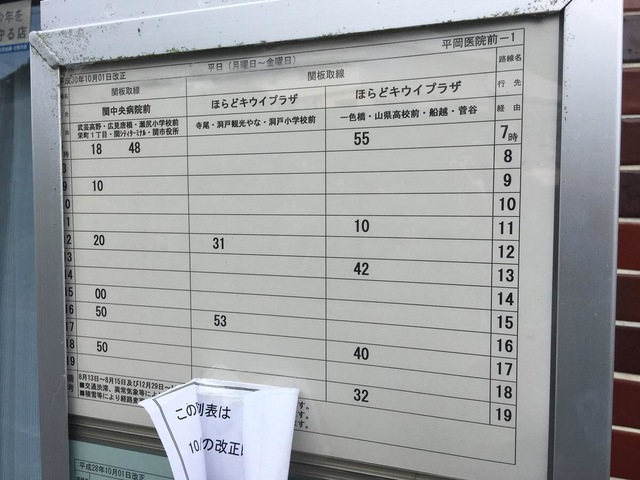 平岡医院前－1
平日（月曜日～金曜日）
年10月01日改正
関板取線 関板取線 路線名
関中央病院前 ほらどキウイプラザ ほらどキウイプラザ 行先
武芸高野・広見唐橋・瀬尻小学校前 寺尾・洞戸観光やな・洞戸小学校前 一色橋・山県高校前・船越・菅谷 経由
栄町１丁目・関シティターミナル・関市役所
時 18 48 55 7時
8
9 10 9
10
10 11
20 31 12
42 13
14
15 00 15
16 50 53 16
17 40 17
18 50 18
19 32 19
備考 8月13日～8月15日及び12月29日～
■交通渋滞、異常気象等に
■積雪等により経路
す。
す。
この別表は
10 の改正
平成28年10月01日改正